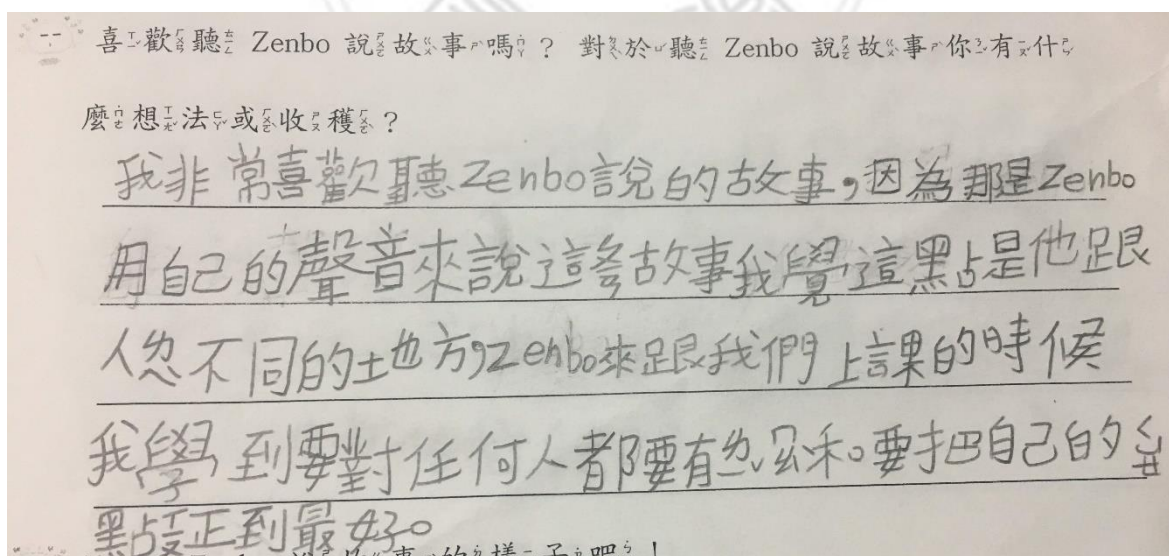 喜歡聽 Zenbo 說故事嗎? 對於聽 Zenbo 說故事你有什
麼想法或收穫?
我非常喜歡聽Zenbo說的故事,因為那是Zenbo
用自己的聲音來說這故事我覺這點是他跟
人不同的地方,Zenbo來跟我們上課的時候
我學到要對任何人都要有。要把自己的
點正到最好。
故事的樣子吧!